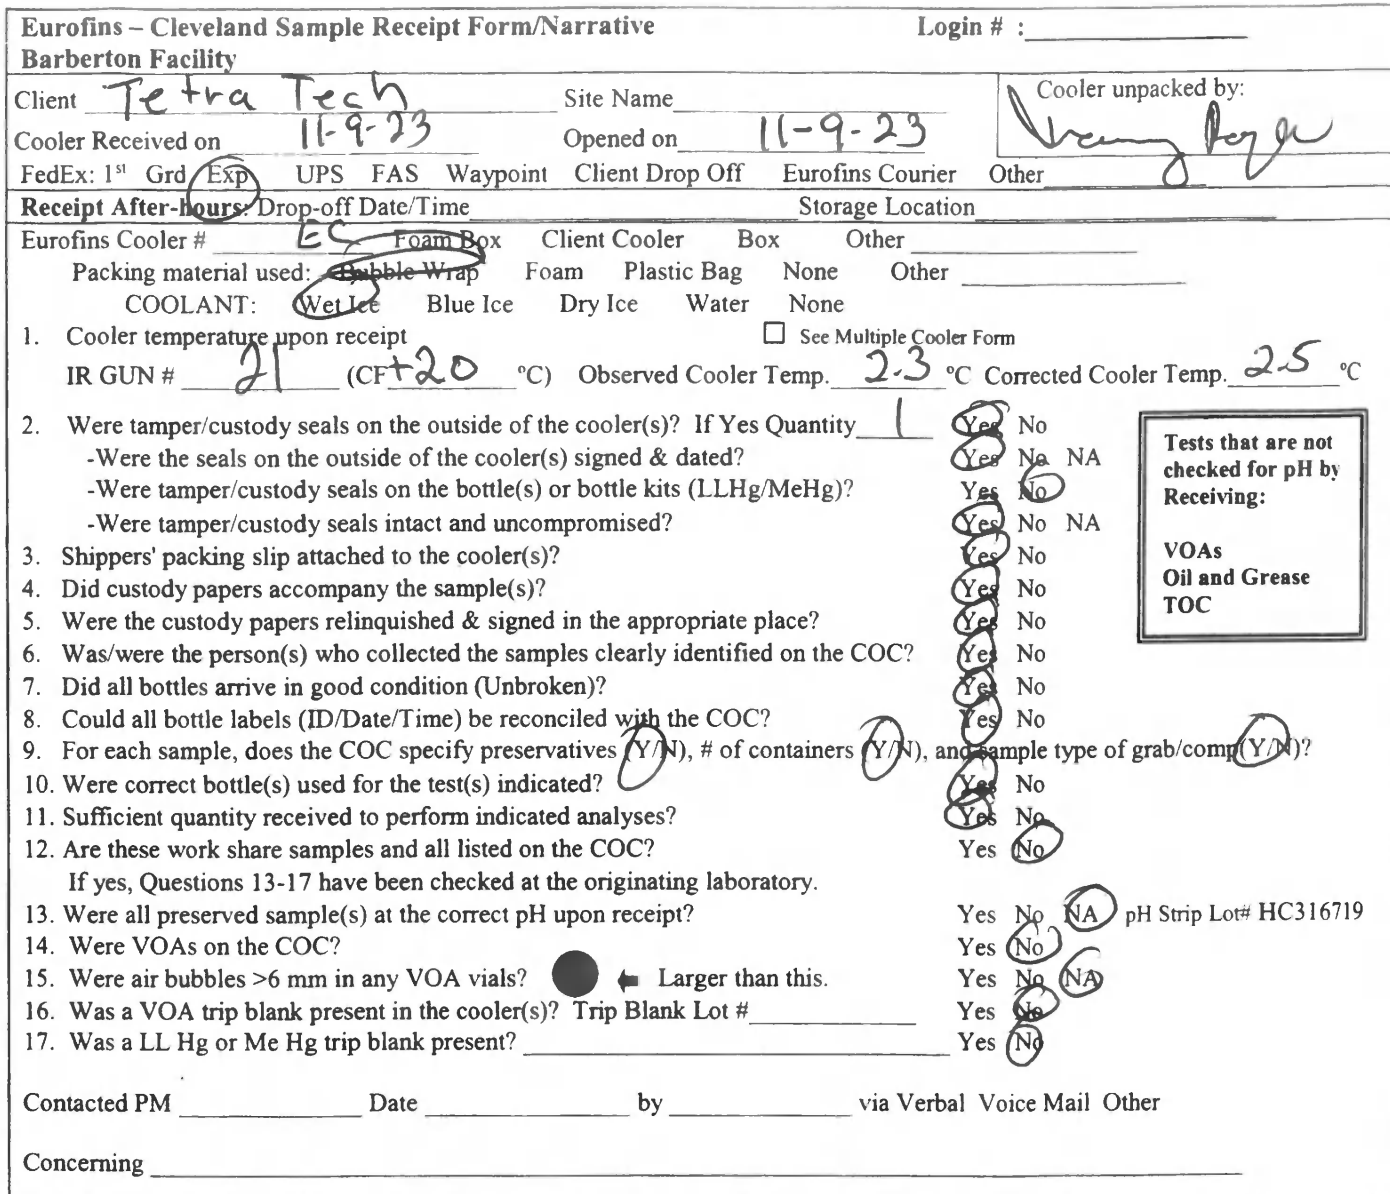 Eurofins – Cleveland Sample Receipt Form/Narrative Login # :
Barberton Facility
Client Tetra Tech Site Name Cooler unpacked by:
Cooler Received on 11-9-23 Opened on 11-9-23
FedEx: 1st Grd Exp UPS FAS Waypoint Client Drop Off Eurofins Courier Other
Receipt After-hours: Drop-off Date/Time Storage Location
Eurofins Cooler # EC Foam Box Client Cooler Box Other
Packing material used: Bubble Wrap Foam Plastic Bag None Other
COOLANT: Wet Ice Blue Ice Dry Ice Water None
1. Cooler temperature upon receipt ☐ See Multiple Cooler Form
IR GUN # 21 (CF +20 °C) Observed Cooler Temp. 2.3 °C Corrected Cooler Temp. 2.5 °C
2. Were tamper/custody seals on the outside of the cooler(s)? If Yes Quantity 1 Yes No
-Were the seals on the outside of the cooler(s) signed & dated? Yes No NA
-Were tamper/custody seals on the bottle(s) or bottle kits (LLHg/MeHg)? Yes No
-Were tamper/custody seals intact and uncompromised? Yes No NA
3. Shippers' packing slip attached to the cooler(s)? Yes No
4. Did custody papers accompany the sample(s)? Yes No
5. Were the custody papers relinquished & signed in the appropriate place? Yes No
6. Was/were the person(s) who collected the samples clearly identified on the COC? Yes No
7. Did all bottles arrive in good condition (Unbroken)? Yes No
8. Could all bottle labels (ID/Date/Time) be reconciled with the COC? Yes No
Tests that are not
checked for pH by
Receiving:
VOAs
Oil and Grease
TOC
9. For each sample, does the COC specify preservatives (Y/N), # of containers (Y/N), and sample type of grab/comp(Y/N)?
10. Were correct bottle(s) used for the test(s) indicated? Yes No
11. Sufficient quantity received to perform indicated analyses? Yes No
12. Are these work share samples and all listed on the COC? Yes No
If yes, Questions 13-17 have been checked at the originating laboratory.
13. Were all preserved sample(s) at the correct pH upon receipt? Yes No NA pH Strip Lot# HC316719
14. Were VOAs on the COC? Yes No
15. Were air bubbles >6 mm in any VOA vials? Larger than this. Yes No NA
16. Was a VOA trip blank present in the cooler(s)? Trip Blank Lot # Yes No
17. Was a LL Hg or Me Hg trip blank present? Yes No
Contacted PM Date by via Verbal Voice Mail Other
Concerning